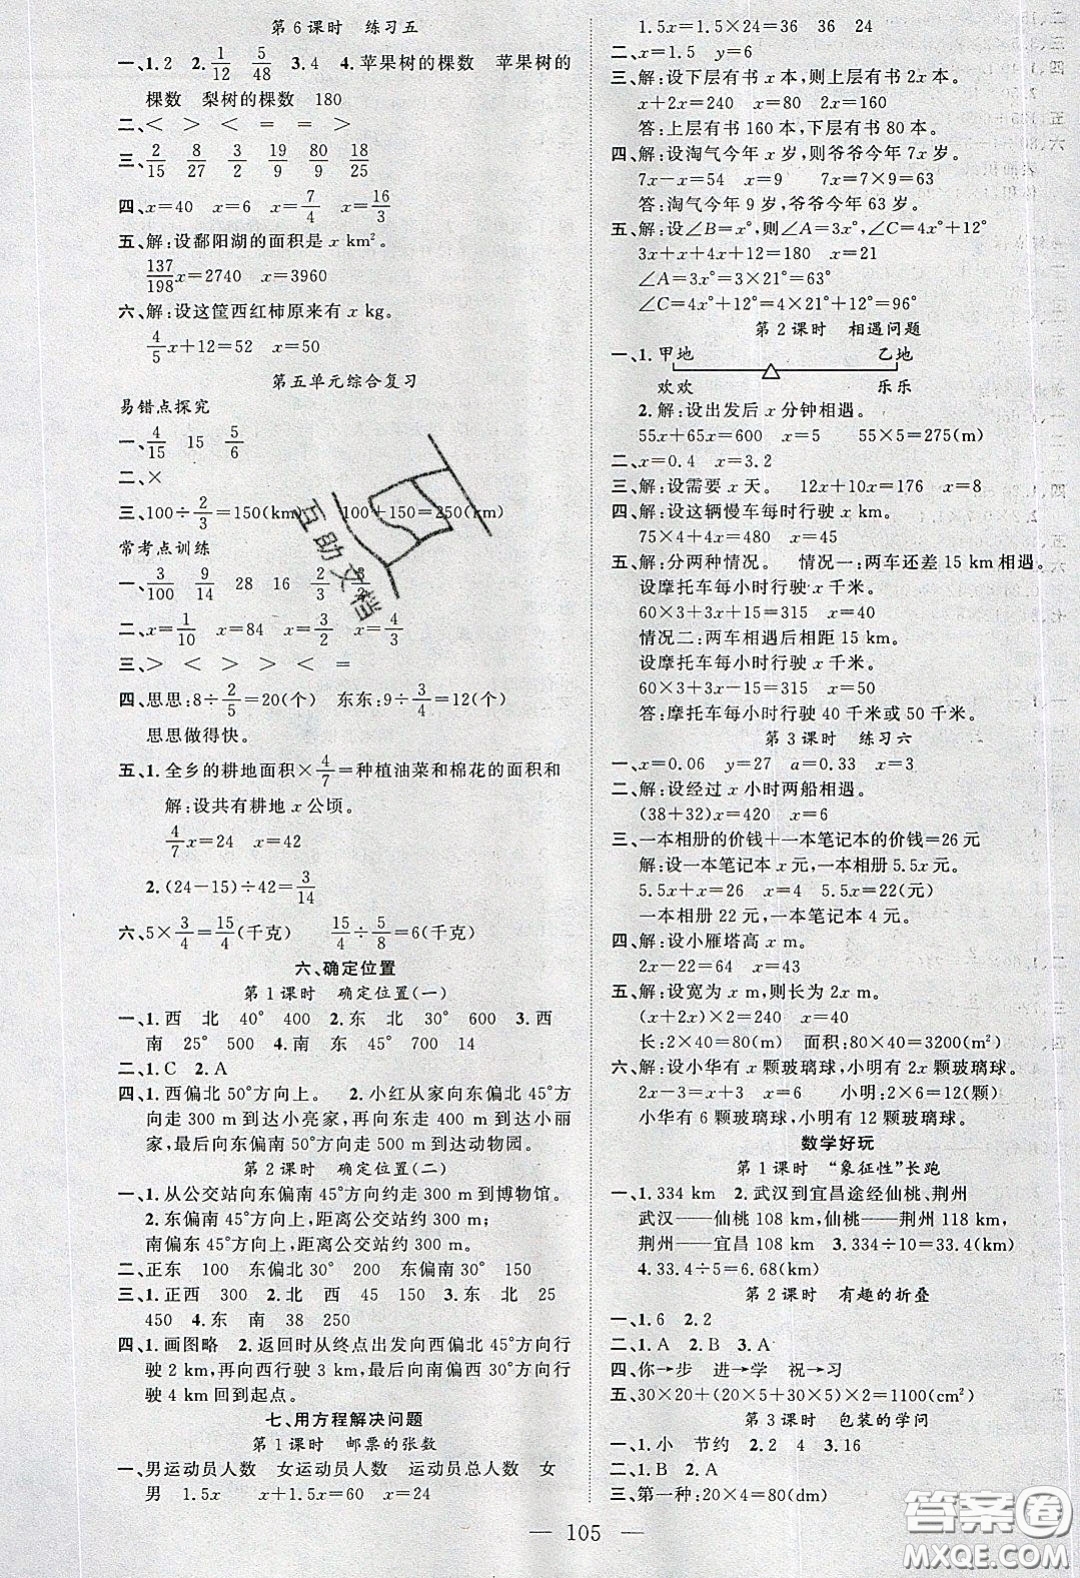 第6课时 练习五
一、1.2 2. 1/12 5/48 3.4 4.苹果树的棵数 苹果树的
棵数 梨树的棵数 180
二、< > < = = >
三、2/15 8/27 19/9 80/9 18/25
四、x=40 x=6 x=7/4 x=16/3
五、解:设鄱阳湖的面积是 x km²。
137/198x=2740 x=3960
六、解:设这筐西红柿原来有 x kg。
4/5x+12=52 x=50
第五单元综合复习
易错点探究
一、4/15 15 5/6
二、×
三、100÷2/3=150(km) 100+150=250(km)
常考点训练
一、3/100 9/14 28 16 2/3
二、x=1/10 x=84 x=3/2 x=4/3
三、> < > > < =
四、思思:8÷2/5=20(个) 东东:9÷3/4=12(个)
思思做得快。
五、1.全乡的耕地面积×4/7=种植油菜和棉花的面积和
解:设共有耕地 x 公顷。
4/7x=24 x=42
2.(24-15)÷42=3/14
六、5×3/4=15/4(千克) 15/4÷5/8=6(千克)
六、确定位置
第1课时 确定位置(一)
一、1.西 北 40° 400 2.东 北 30° 600 3.西
南 25° 500 4.南 东 45° 700 14
二、1.C 2.A
四、1.西偏北50°方向上。 2.小红从家向东偏北45°方
向走 300 m 到达小亮家,再向东走 400 m 到达小丽
家,最后向东偏南50°方向走 500 m 到达动物园。
第2课时 确定位置(二)
一、1.从公交站向东偏南45°方向约走 300 m到博物馆。
2.东偏南45°方向上,距离公交站约 300 m;
南偏东45°方向上,距离公交站约 300 m。
二、正东 100 东偏北30° 200 南偏东30° 150
三、1.正西 300 2.北 西 45 150 3.东 北 25
450 东 南 38 250
四、1.画图略 2.返回时从终点出发向西偏北45°方向行
驶 2 km,再向西行驶 3 km,最后向南偏西50°方向
行驶 4 km 回到起点。
七、用方程解决问题
第1课时 邮票的张数
一、男运动员人数 女运动员人数 运动员总人数 女
男 1.5x x+1.5x=60 x=24
1.5x=1.5×24=36 36 24
二、x=1.5 y=6
三、解:设下层有书 x 本,则上层有书 2x 本。
x+2x=240 x=80 2x=160
答:上层有书 160 本,下层有书 80 本。
四、解:设淘气今年 x 岁,则爷爷今年 7x 岁。
7x-x=54 x=9 7x=7×9=63
答:淘气今年 9 岁,爷爷今年 63 岁。
五、解:设∠B=x°,则∠A=3x°,∠C=4x°+12°
3x+x+4x+12=180 x=21
∠A=3x°=3×21°=63°
∠C=4x°+12°=4×21°+12°=96°
第2课时 相遇问题
一、1.甲地 乙地
欢欢 乐乐
2.解:设出发后 x 分钟相遇。
55x+65x=600 x=5 55×5=275(m)
二、x=0.4 x=3.2
三、解:设需要 x 天。 12x+10x=176 x=8
四、解:设这辆慢车每时行驶 x km。
75×4+4x=480 x=45
五、解:分两种情况。 情况一:两车还差 15 km相遇。
设摩托车每小时行驶 x 千米。
60×3+3x+15=315 x=40
情况二:两车相遇后相距 15 km。
设摩托车每小时行驶 x 千米。
60×3+3x-15=315 x=50
答:摩托车每小时行驶 40 千米或 50 千米。
第3课时 练习六
一、x=0.06 y=27 a=0.33 x=3
二、解:设经过 x 小时两船相遇。
(38+32)x=420 x=6
三、一本相册的价钱+一本笔记本的价钱=26 元
解:设一本笔记本 x 元,一本相册 5.5x元。
5.5x+x=26 x=4 5.5x=22(元)
一本相册 22 元,一本笔记本 4 元。
四、解:设小雁塔高 x m。
2x-22=64 x=43
五、解:设宽为 x m,则长为 2x m。
(x+2x)×2=240 x=40
长:2×40=80(m) 面积:80×40=3200(m²)
六、解:设小华有 x 颗玻璃球,小明有 2x 颗玻璃球。
2x-3=x+3 x=6 小明:2×6=12(颗)
小华有 6 颗玻璃球,小明有 12 颗玻璃球。
数学好玩
第1课时 “象征性”长跑
一、1.334 km 2.武汉到宜昌途经仙桃、荆州
武汉——仙桃 108 km,仙桃——荆州 118 km,
荆州——宜昌 108 km 3.334÷10=33.4(km)
4.33.4÷5=6.68(km)
第2课时 有趣的折叠
一、1.6 2.2
二、1.A 2.B 3.A
四、你→步 进→学 祝→习
五、30×20+(20×5+30×5)×2=1100(cm²)
第3课时 包装的学问
一、1.小 节约 2.2 4 3.16
二、1.B 2.A
三、第一种:20×4=80(dm)
105
互助文档
答案圈
MXQE.COM